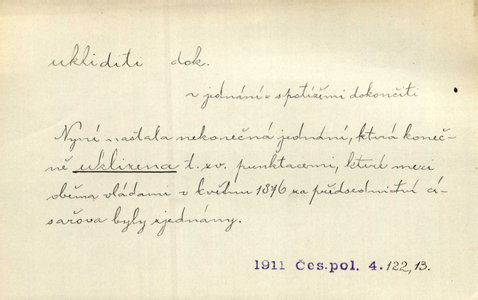 ukliditi dok.
v jednání = s potížemi dokončiti
Nyní nastala nekonečná jednání, která koneč-
ně uklizena t. zv. punktacemi, které mezi
oběma vládami v květnu 1896 za předsednictví cí-
sařova byly sjednány.
1911 Čes.pol. 4. 122,13.